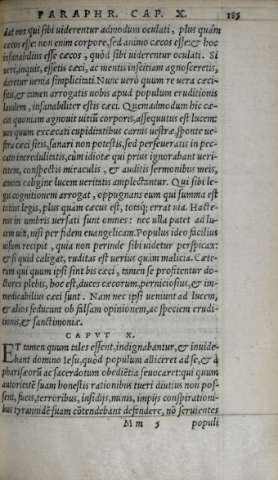 PARAPHR. CAP. X. 185
dat eos qui sibi uiderentur admodum oculati, plus quàm
cæcos esse: non enim corpore, sed animo cæcos esse, & hoc
insanabilius esse cæcos, quòd sibi uiderentur oculati. Si
uerè, inquit, essetis cæci, ac uestrũ inscitiam agnosceretis,
daretur uenia simplicitati. Nunc uerò quum re uera cæci-
sitis, & tamen arrogatis uobis apud populum eruditionis
laudem, insanabiliter estis cæci. Quemadmodum hic cæ-
cus quoniam agnouit uitiũ corporis, assequutus est lucem:
uos quum excæcati cupiditatibus carnis uestræ, sponte ue-
stra cæci sitis, sanari non potestis, sed perseueratis in pec-
cato incredulitatis, cùm idiotæ qui prius ignorabant ueri-
tatem, conspectis miraculis, & auditis sermonibus meis,
amota caligine lucem ueritatis amplectantur. Qui sibi le-
gis cognitionem arrogat, oppugnans eum qui summa est
totius legis, plus quàm cæcus est, totusq; errat uia. Hacte-
nus in umbris uersati sunt omnes: nec ulla patet ad lu-
cem uia, nisi per fidem euangelicam. Populus ideo facilius
uisum recipit, quia non perinde sibi uidetur perspicax:
& si quid caligat, ruditas est uerius quàm malicia. Cæte-
rum qui quum ipsi sint bis cæci, tamen se profitentur do-
ctores plebis, hoc est, duces cæcorum, perniciosius, & im-
medicabilius cæci sunt. Nam nec ipsi ueniunt ad lucem,
& alios seducunt ob falsam opinionem, ac speciem erudi-
tionis, & sanctimoniæ.
CAPVT X.
ET tamen quum tales essent, indignabantur, & inuide-
bant domino Iesu, quòd populum alliceret ad se, & à
pharisæorũ ac sacerdotum obediẽtia seuocaret: qui quum
autoritatẽ suam honestis rationibus tueri diutius non pos-
sent, fucis, terroribus, insidijs, minis, impijs conspirationi-
bus tyrannidẽ suam cõtendebant defendere, nõ seruientes
M m 5 populi